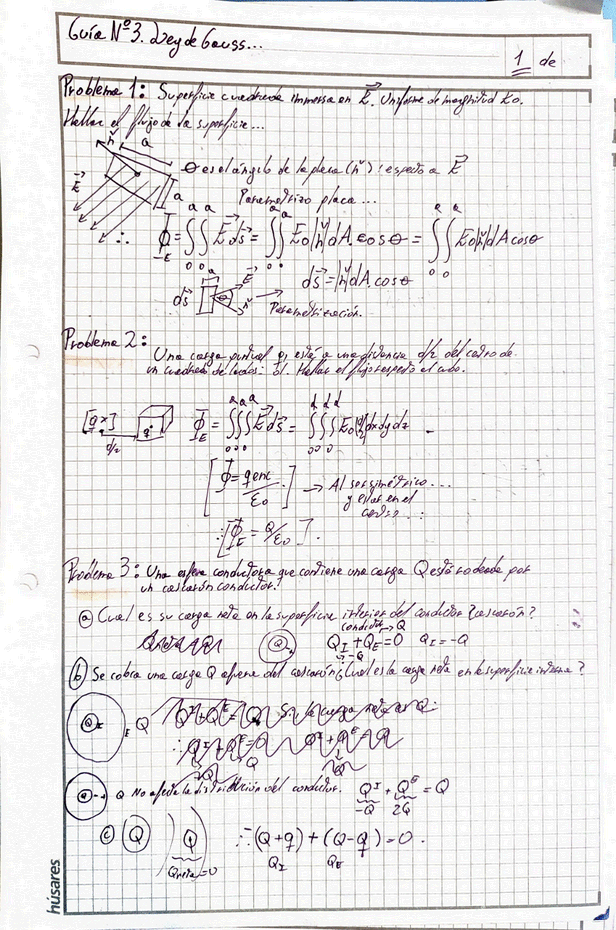 Guía Nº3. Ley de Gauss...
1 de
Problema 1: Superficie cuadrada inmersa en E. Uniforme de magnitud E0.
Hallar el flujo de la superficie...
n a
E a
θ es el ángulo de la placa (n) respecto a E
Parametrizo placa...
∴ Φ_E = ∬ E ds = ∬ E0 |n| dA. cosθ = ∬ E0 |n| dA cosθ
ds E θ n → ds = |n| dA. cosθ
Parametrización.
Problema 2: Una carga puntual q, está a una distancia d/2 del centro de
un cuadrado de lados: d. Hallar el flujo respecto al cubo.
d/2 q Φ_E = ∭ E ds = ∭ E0 dxdydz
[Φ = qenc/ε0.] → Al ser simétrico...
y estar en el
centro...
∴ [Φ_E = Q/ε0].
Problema 3: Una esfera conductora que contiene una carga Q está rodeada por
un cascarón conductor.
a) Cual es su carga neta en la superficie interior del conductor (cascarón)?
conductor → Q
Q_I + Q_E = 0 Q_I = -Q
-Q
b) Se coloca una carga Q afuera del cascarón ¿Cuál es la carga neta en la superficie interna?
Q
Q No afecta la distribución del conductor. Q^I + Q^E = Q
-Q 2Q
c) Q Q ∴ (Q+q) + (Q-q) = 0.
Qneta=0 Q_I Q_E
húsares